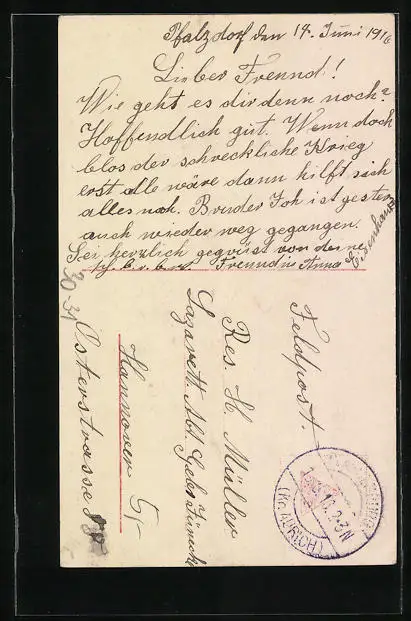 Pfalzdorf den 14. Juni 1916
Lieber Freund!
Wie geht es dir denn noch?
Hoffendlich gut. Wenn doch
blos der schreckliche Krieg
erst alle wäre dann hilft sich
alles noh. Bruder Joh ist gestern
auch wieder weg gegangen.
Sei herzlich gegrüst von deine
Freundin Anna
Feldpost.
Res. H. Müller
Lazarett Abt.
Hannover
Osterstrasse
30-31
(Kr. AURICH)